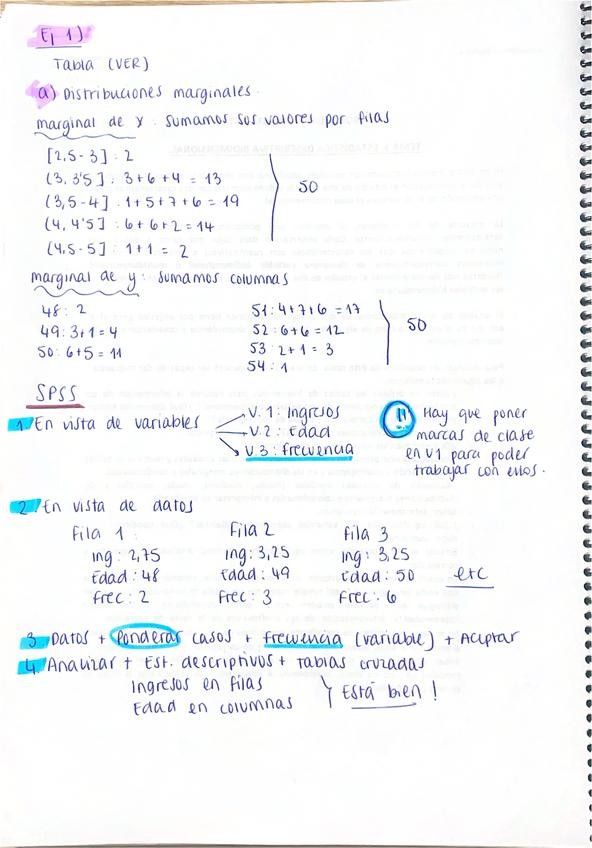 Ej 1)
Tabla (VER)
a) Distribuciones marginales.
marginal de x : sumamos sus valores por filas
[2,5 - 3] : 2
(3, 3'5] : 3+6+4 = 13
(3,5-4] : 1+5+7+6 = 19
(4, 4'5] : 6+6+2 = 14
(4,5-5] : 1+1 = 2
50
marginal de y : sumamos columnas
48 : 2
49 : 3+1 = 4
50 : 6+5 = 11
51 : 4+7+6 = 17
52 : 6+6 = 12
53 : 2+1 = 3
54 : 1
50
SPSS
1. En vista de variables
V. 1 : Ingresos
V. 2 : Edad
V 3 : frecuencia
!! Hay que poner
marcas de clase
en V1 para poder
trabajar con ellos.
2. En vista de datos
Fila 1 :
Ing : 2,75
Edad : 48
Frec : 2
Fila 2
Ing : 3,25
Edad : 49
Frec : 3
Fila 3
Ing : 3,25
Edad : 50
Frec : 6
etc
3. Datos + Ponderar casos + frecuencia (variable) + Aceptar
4. Analizar + Est. descriptivos + tablas cruzadas
Ingresos en filas
Edad en columnas
Está bien !